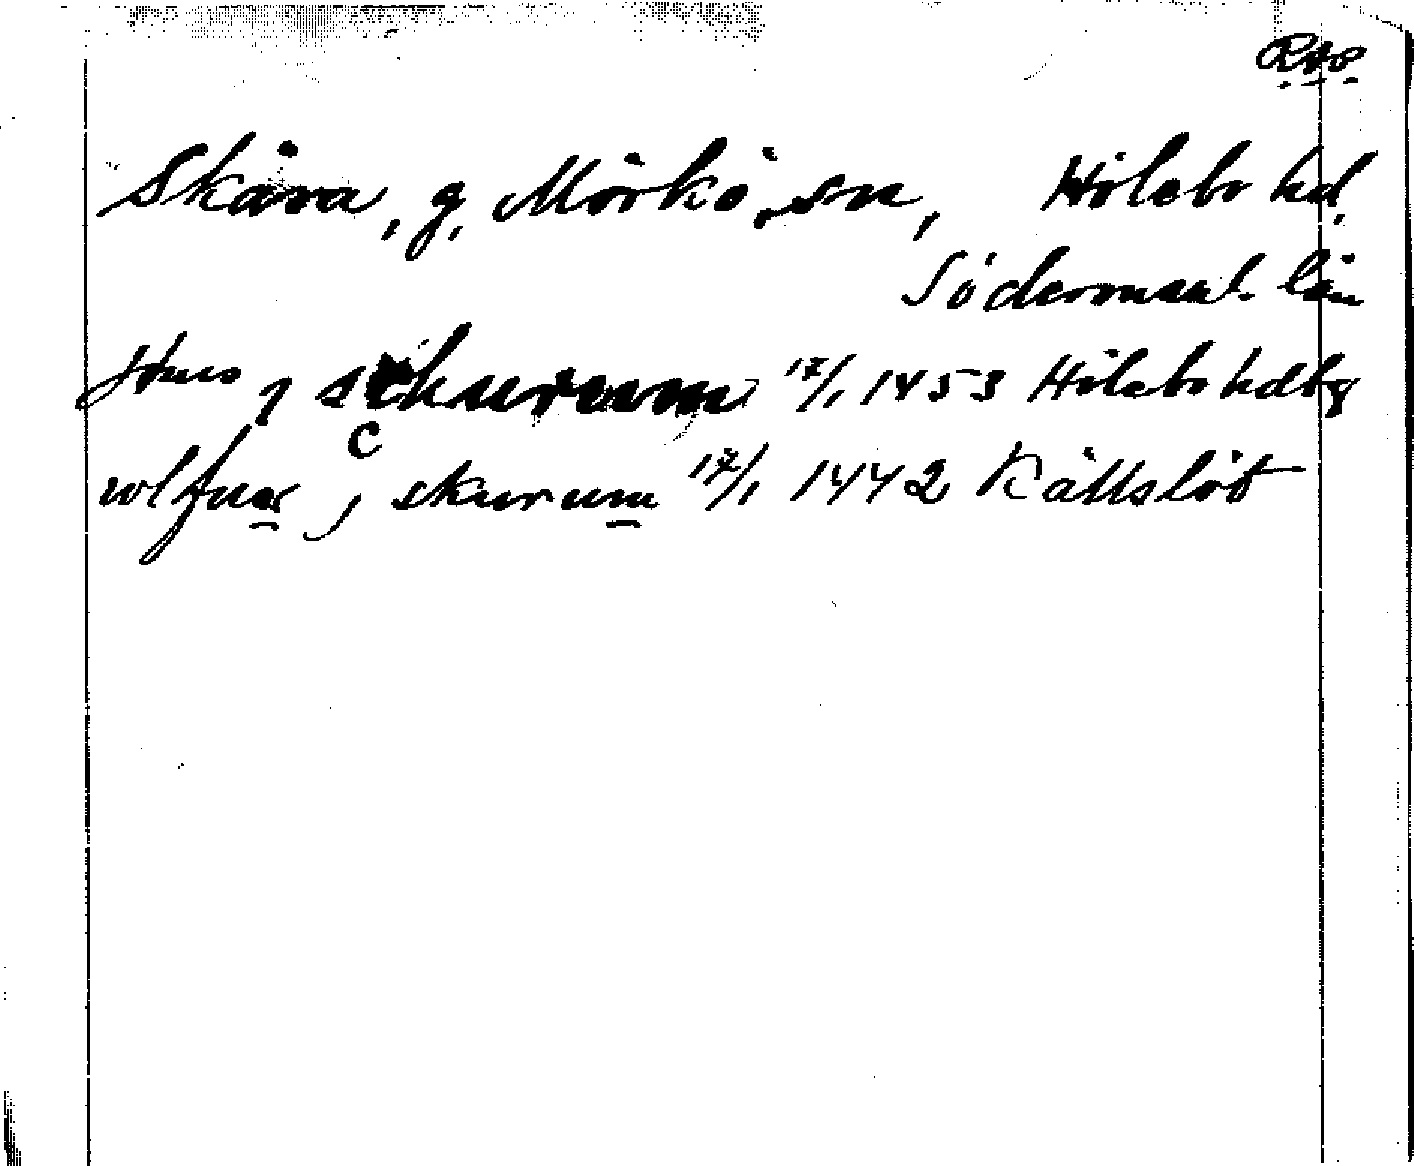 Skåra, g, Mörkö, sn, Hölebo hd,
Södermanl. län
Jöns j schurum 17/1 1453 Hölebo hdbg
wlfuar j skurum 17/1 1442 Källslöt